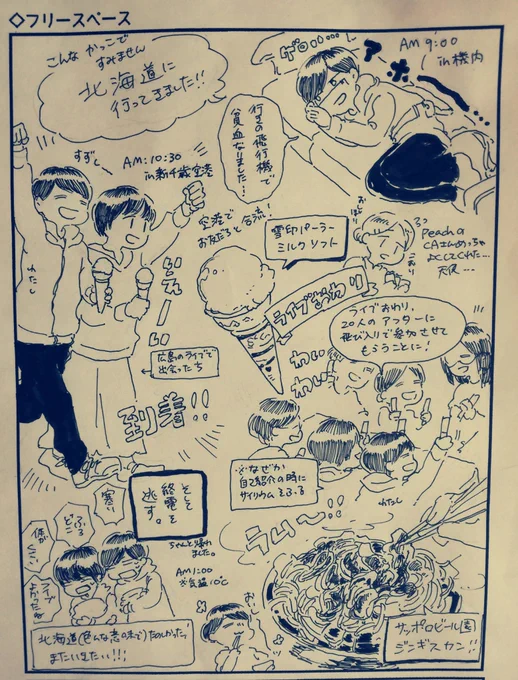 ◇フリースペース
こんな かっこで
すみません
北海道に
行ってきました!!
ゲロ……
アホ
AM 9:00
in 機内
行きの飛行機で
貧血なりました…
すずしー
AM:10:30
in 新千歳空港
空港で
お友だちと合流!
わたし
いえーい
広島のライブで
出会ったち
到着!!
雪印パーラー
ミルクソフト
Peachの
CAさんめっちゃ
よくしてくれた…
天使…
ライブおわり
ライブおわり、
20人のアフターに
飛び入りで参加させて
もらうことに!
わい
わい
※なぜか
自己紹介の時に
サイリウムをふる
わたし
そして
終電を
逃す。
ちゃんと帰れました。
寒い
ライブ
よかったね
AM1:00
※気温10℃
ラム〜!!
サッポロビール園
ジンギスカン!!
北海道(色んな意味で)たのしかった。
またいきたい!!!